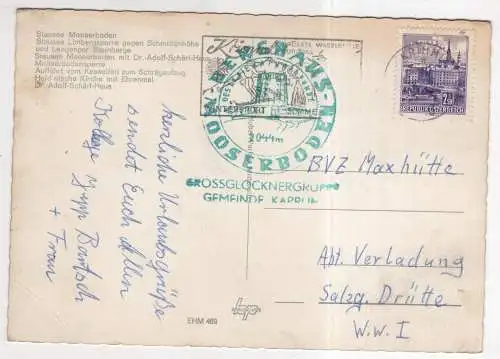 Stausee Mooserboden
Stausee Limbergsperre gegen Schmittenhöhe
und Leoganger Steinberge
Stausee Mooserboden mit Dr.-Adolf-Schärf-Haus
Mooserbodensperre
Auffahrt vom Kesselfall zum Schrägaufzug
Heidnische Kirche mit Ehrenmal
Dr. Adolf-Schärf-Haus
herzliche Urlaubsgrüße
sendet Euch allen
Kollege Bartsch
+ Frau
BERGHAUS
MOOSERBODEN
WINTERSPORT SOMMER
2044m
GROSSGLOCKNERGRUPPE
GEMEINDE KAPRUN
REPUBLIK ÖSTERREICH
BVZ Maxhütte
Abt. Verladung
Salzg. Drütte
W.W.I
EHM 469